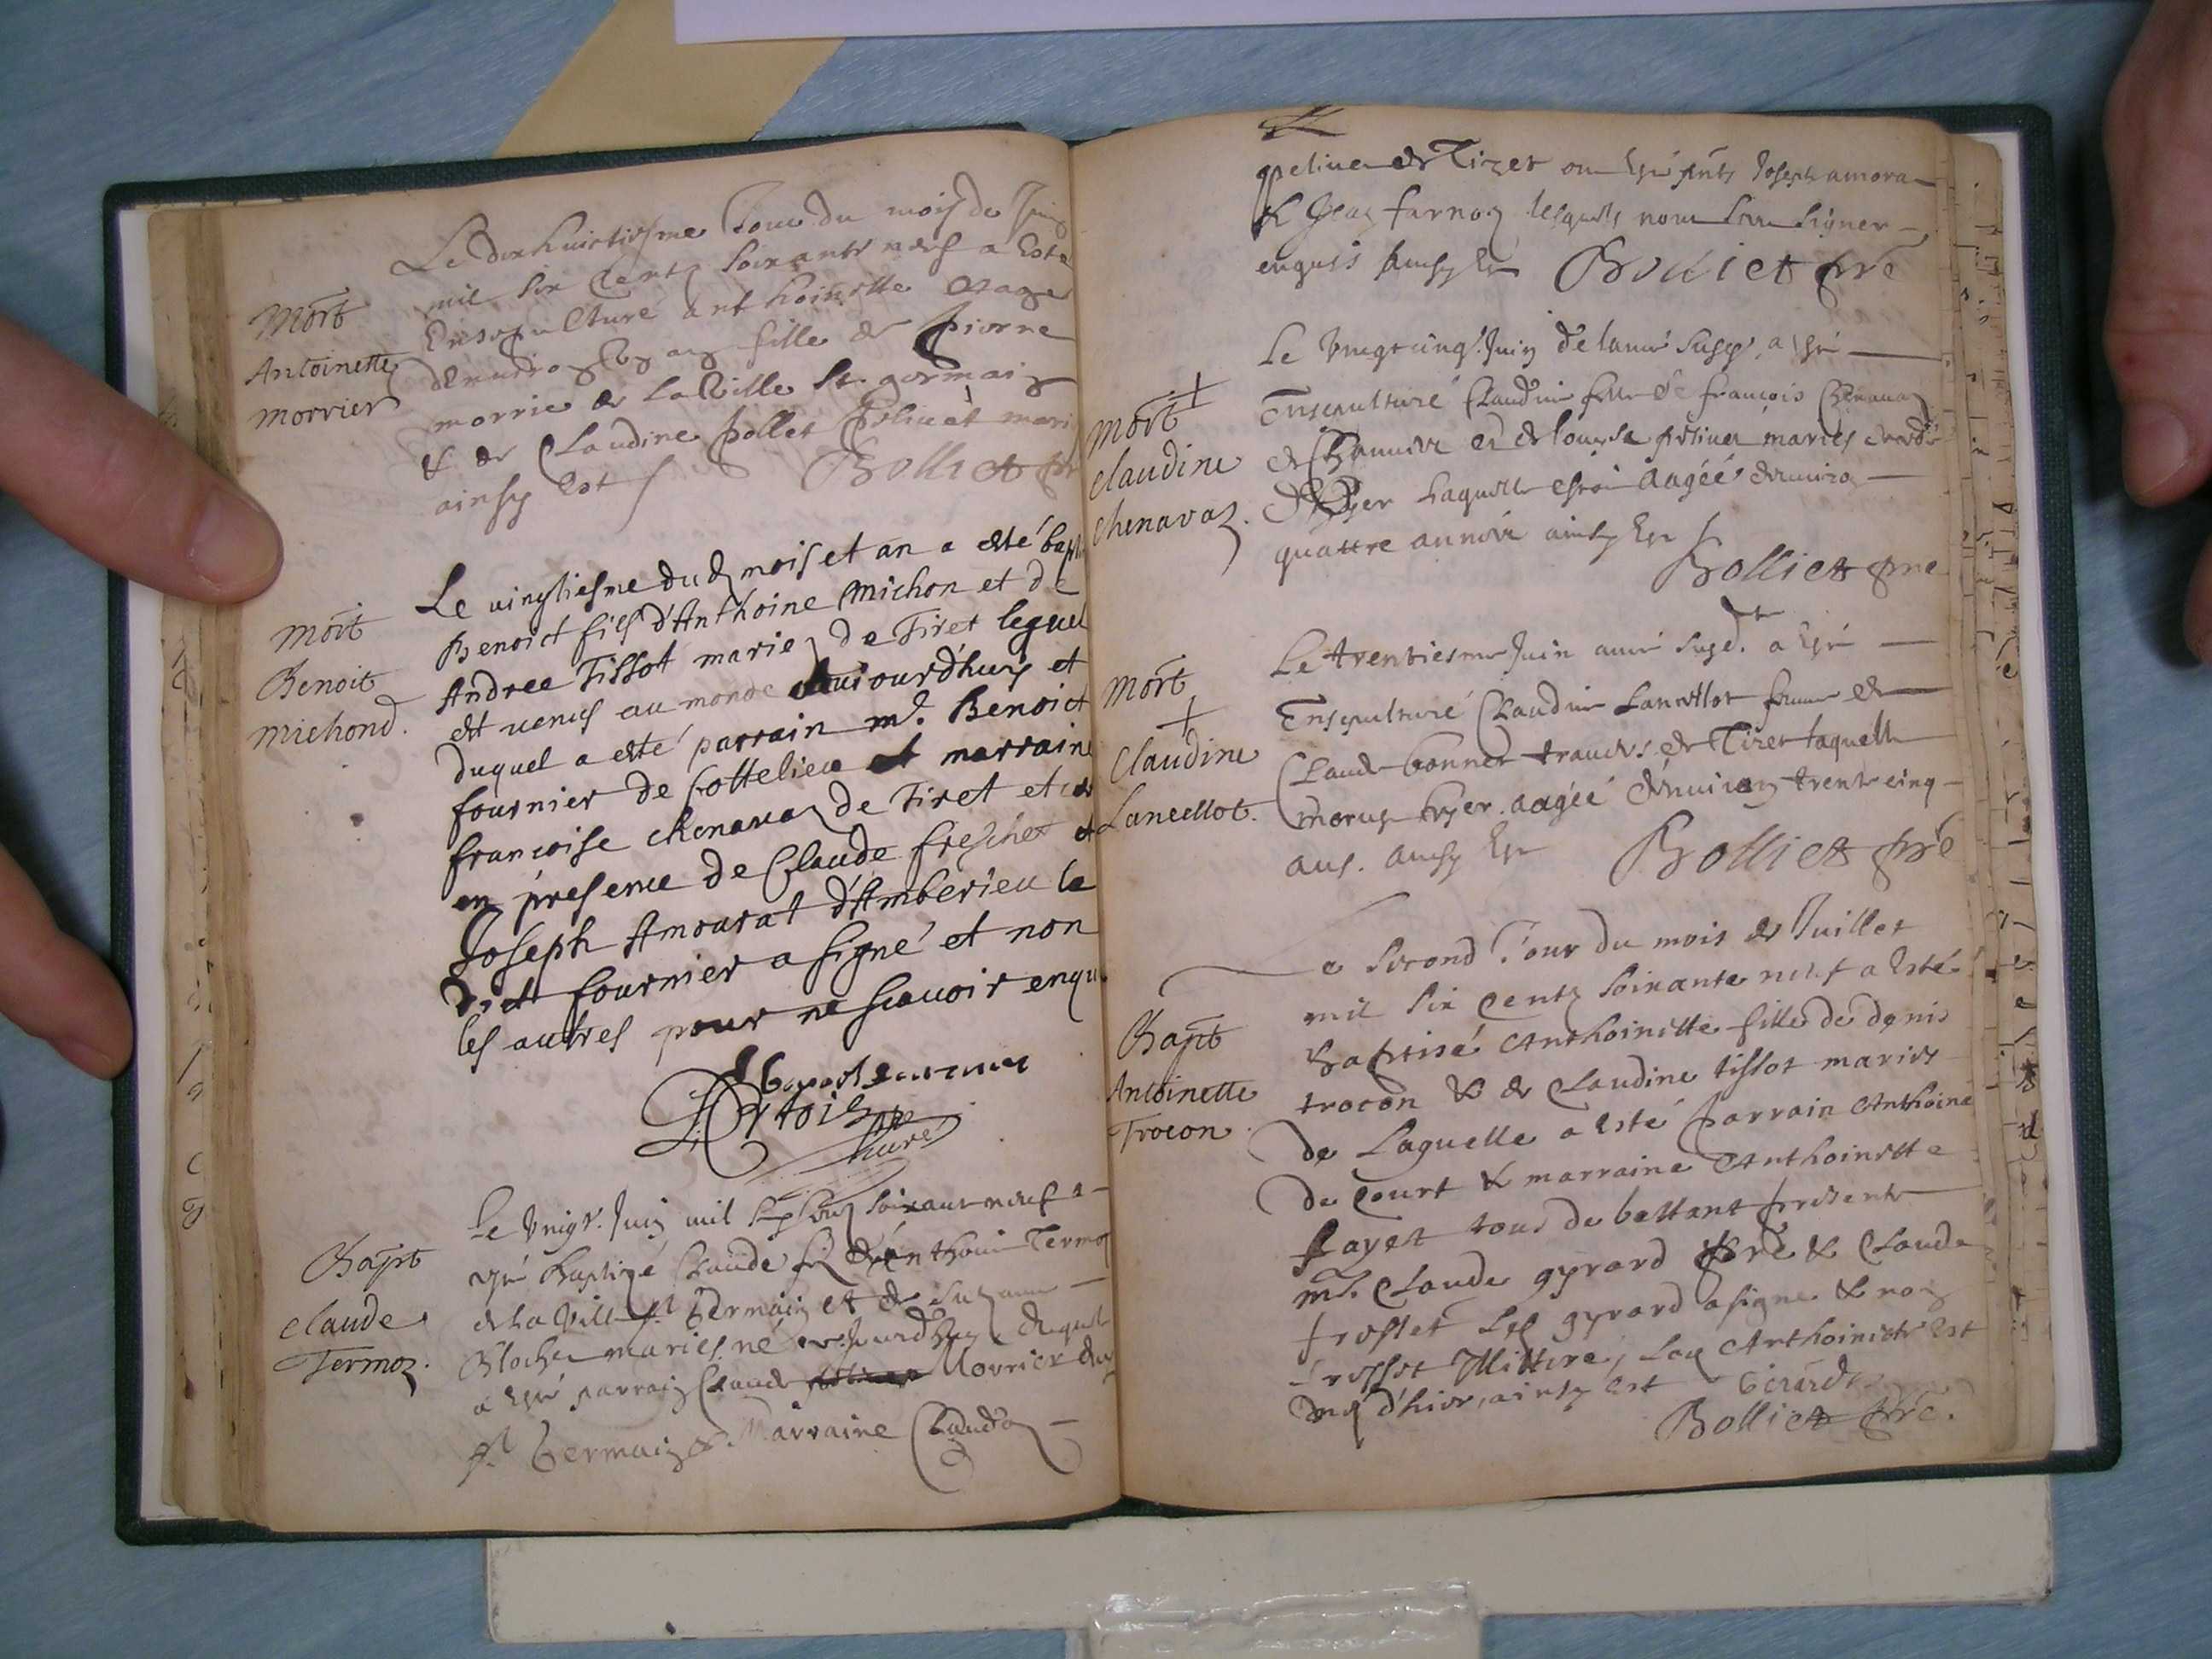 Le dixhuictiesme Jour du mois de Juin
mil six centz soixante neuf a esté
Mort
Antoinette
morrier
Ensepulturé anthoinette aagee
denviron an fille de pierre
morrier de La Ville St. germain
& de Claudine pollet pelivet mari
ainsy est Bolliet pbr
Mort
Benoit
michond.
Le vingtiesme dud mois et an a esté bapt
Benoict fils d'Anthoine Michon et de
Andree Tissot mariez de Tiret lequel
est venus au monde aujourdhuy et
duquel a esté parrain mr. Benoict
fournier de Cottelieu et marraine
francoise chenavaz de Tiret et
en presence de Claude freschet et
Joseph Amourat d'Amberieu le
dict fournier a signé et non
les autres pour ne scavoir enqu
curé
Bapt
claude
Termoz.
Le vingt. Juin mil six centz soixante neuf a
esté Baptizé Claude filz d'Anthoine Termoz
de la Ville St Germain et de Suzanne
Blocher mariés né aujourdhuy duquel
a esté parrain Claude Morrier dud
St Germain & Marraine Claudaz
pelivet de Tiret on esté pnts Joseph amora
& farnoz lesquels nont sceu signer
enquis ainsy est Bolliet pbre
mort
claudine
chenavaz.
Le vingt cinq. Juin de lannée susd, a esté
Ensepulturé Claudine fille de françois Chenavaz
de et de louyse pelivet mariés
d'hyer laquelle estoit aagéé denviron
quattre année ainsy est
Bolliet pbre
mort
Claudine
Lancellot.
Le trentiesme Juin année susd. a esté
Ensepulturé Claudine Lancellot femme de
Claude bonnet de Tiret laquelle
morut hyer. aagéé denviron trente cinq
ans. ainsy est Bolliet pbre
Bapt
Antoinette
Trocon.
Le second Jour du mois de Juillet
mil six centz soixante neuf a esté
baptisé Anthoinette fille de denis
trocon & de Claudine tissot mariés
de Laquelle a esté parrain Anthoine
de court & marraine Anthoinette
fayet tous de bettant presents
mr. Claude gyrard pbre & Claude
frosset led gyrard a signe & non
frosset Illitteré, lad Anthoinette est
née d'hier, ainsy est Girard
Bolliet pbre.